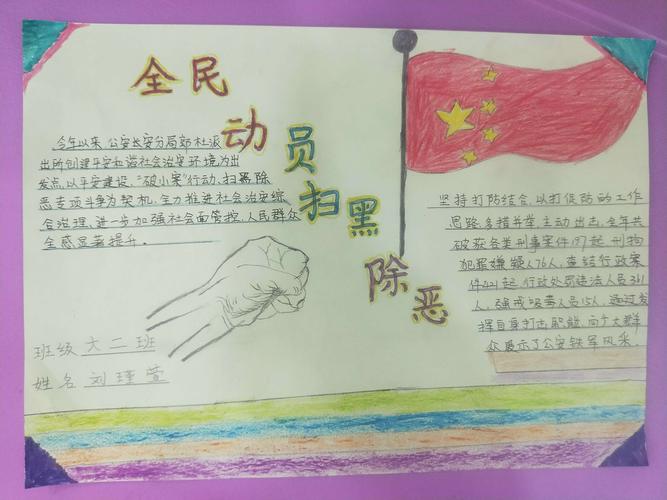 全民动员扫黑除恶
今年以来，公安长安分局郭杜派
出所创建平安和谐社会治安环境为出
发点，以平安建设，“破小案”行动、扫黑除
恶专项斗争为契机，全力推进社会治安综
合治理，进一步加强社会面管控，人民群众
全感显著提升。
坚持打防结合，以打促防的工作
思路，多措并举主动出击，全年共
破获各类刑事案件197起，刑拘
犯罪嫌疑人76人，查结行政案
件421起，行政处罚违法人员361
人，强戒吸毒人员15人，通过发
挥自身打击职能，向广大群
众展示了公安铁军风采。
班级 大二班
姓名 刘瑾萱